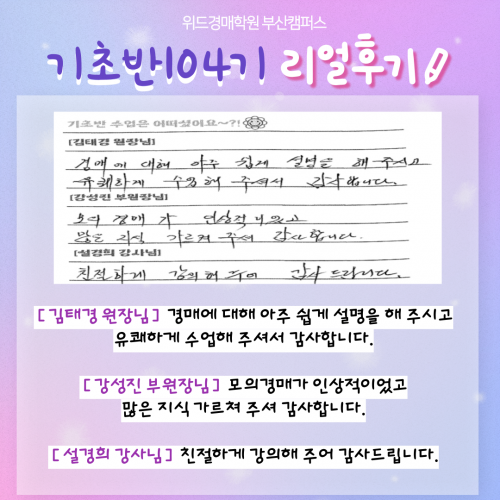 위드경매학원 부산캠퍼스
기초반104기 리얼후기
기초반 수업은 어떠셨어요~?!
[김태경 원장님]
경매에 대해 아주 쉽게 설명을 해 주시고
유쾌하게 수업해 주셔서 감사합니다.
[강성진 부원장님]
모의경매가 인상적이었고
많은 지식 가르쳐 주셔 감사합니다.
[설경희 강사님]
친절하게 강의해 주어 감사드립니다.
[김태경 원장님] 경매에 대해 아주 쉽게 설명을 해 주시고
유쾌하게 수업해 주셔서 감사합니다.
[강성진 부원장님] 모의경매가 인상적이었고
많은 지식 가르쳐 주셔 감사합니다.
[설경희 강사님] 친절하게 강의해 주어 감사드립니다.